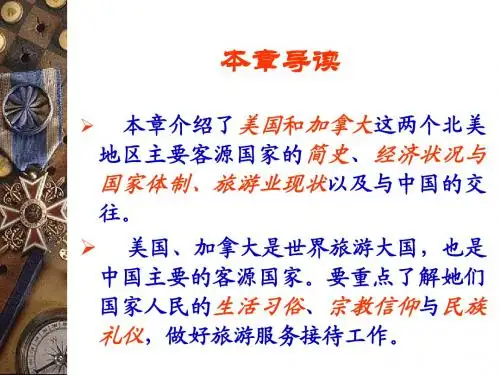 本章导读
本章介绍了美国和加拿大这两个北美
地区主要客源国家的简史、经济状况与
国家体制、旅游业现状以及与中国的交
往。
美国、加拿大是世界旅游大国，也是
中国主要的客源国家。要重点了解她们
国家人民的生活习俗、宗教信仰与民族
礼仪，做好旅游服务接待工作。